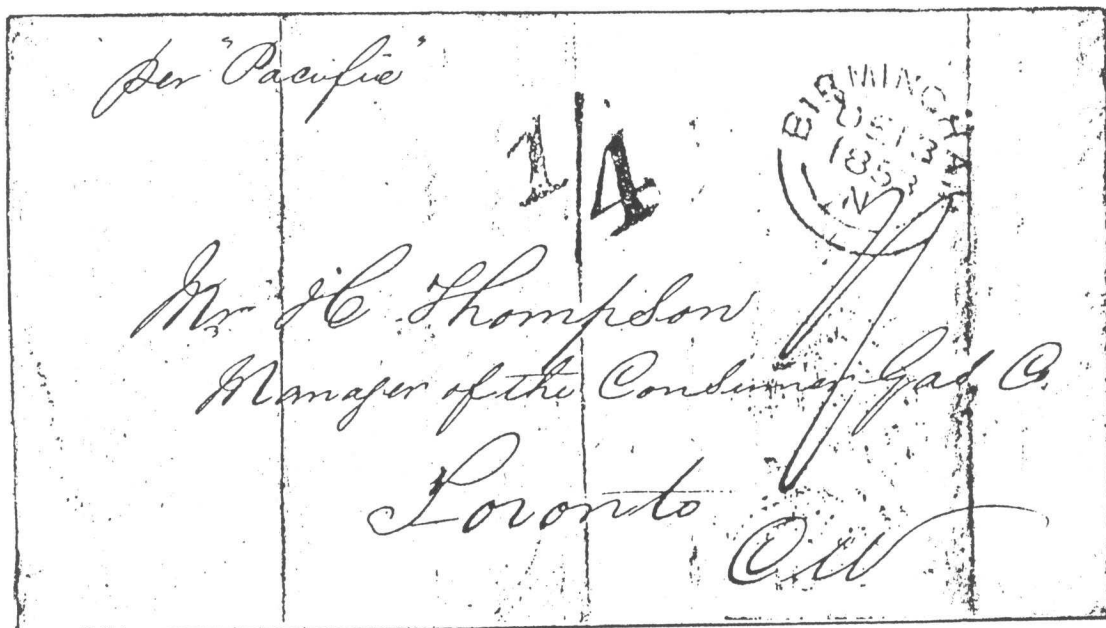 per "Pacific"
1/4
BIRMINGHAM
OC 13
185
N
Mr H C Thompson
Manager of the Consumer Gas Co.
Toronto
C.W